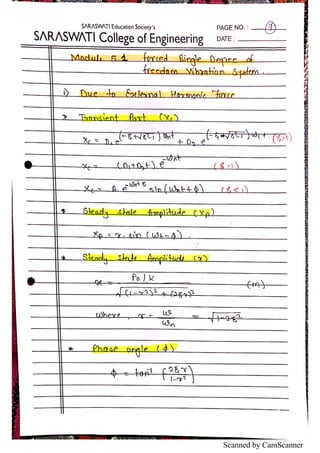 SARASWATI Education Society's
SARASWATI College of Engineering
PAGE NO. : 9
DATE :
Module 5.1 forced Single Degree of
freedom Vibration System.
i) Due to External Harmonic force
* Transient Part (Xc)
Xc = D₁ e^(-ξ+√ξ²-1) ωnt + D₂ e^(-ξ-√ξ²-1) ωnt (ξ>1)
Xc = (D₁+D₂t) e^-ωnt (ξ=1)
Xc = D. e^-ωntξ sin (ωdt+ϕ) (ξ<1)
* Steady state Amplitude (Xp)
Xp = x. sin (ωt-ϕ).
* Steady State Amplitude (x)
x = Po / K / √(1-r²)² + (2ξr)² (m)
where, r = ω/ωn = √1-2ξ²
* Phase angle (ϕ)
ϕ = tan⁻¹ [2ξr / 1-r²]
Scanned by CamScanner